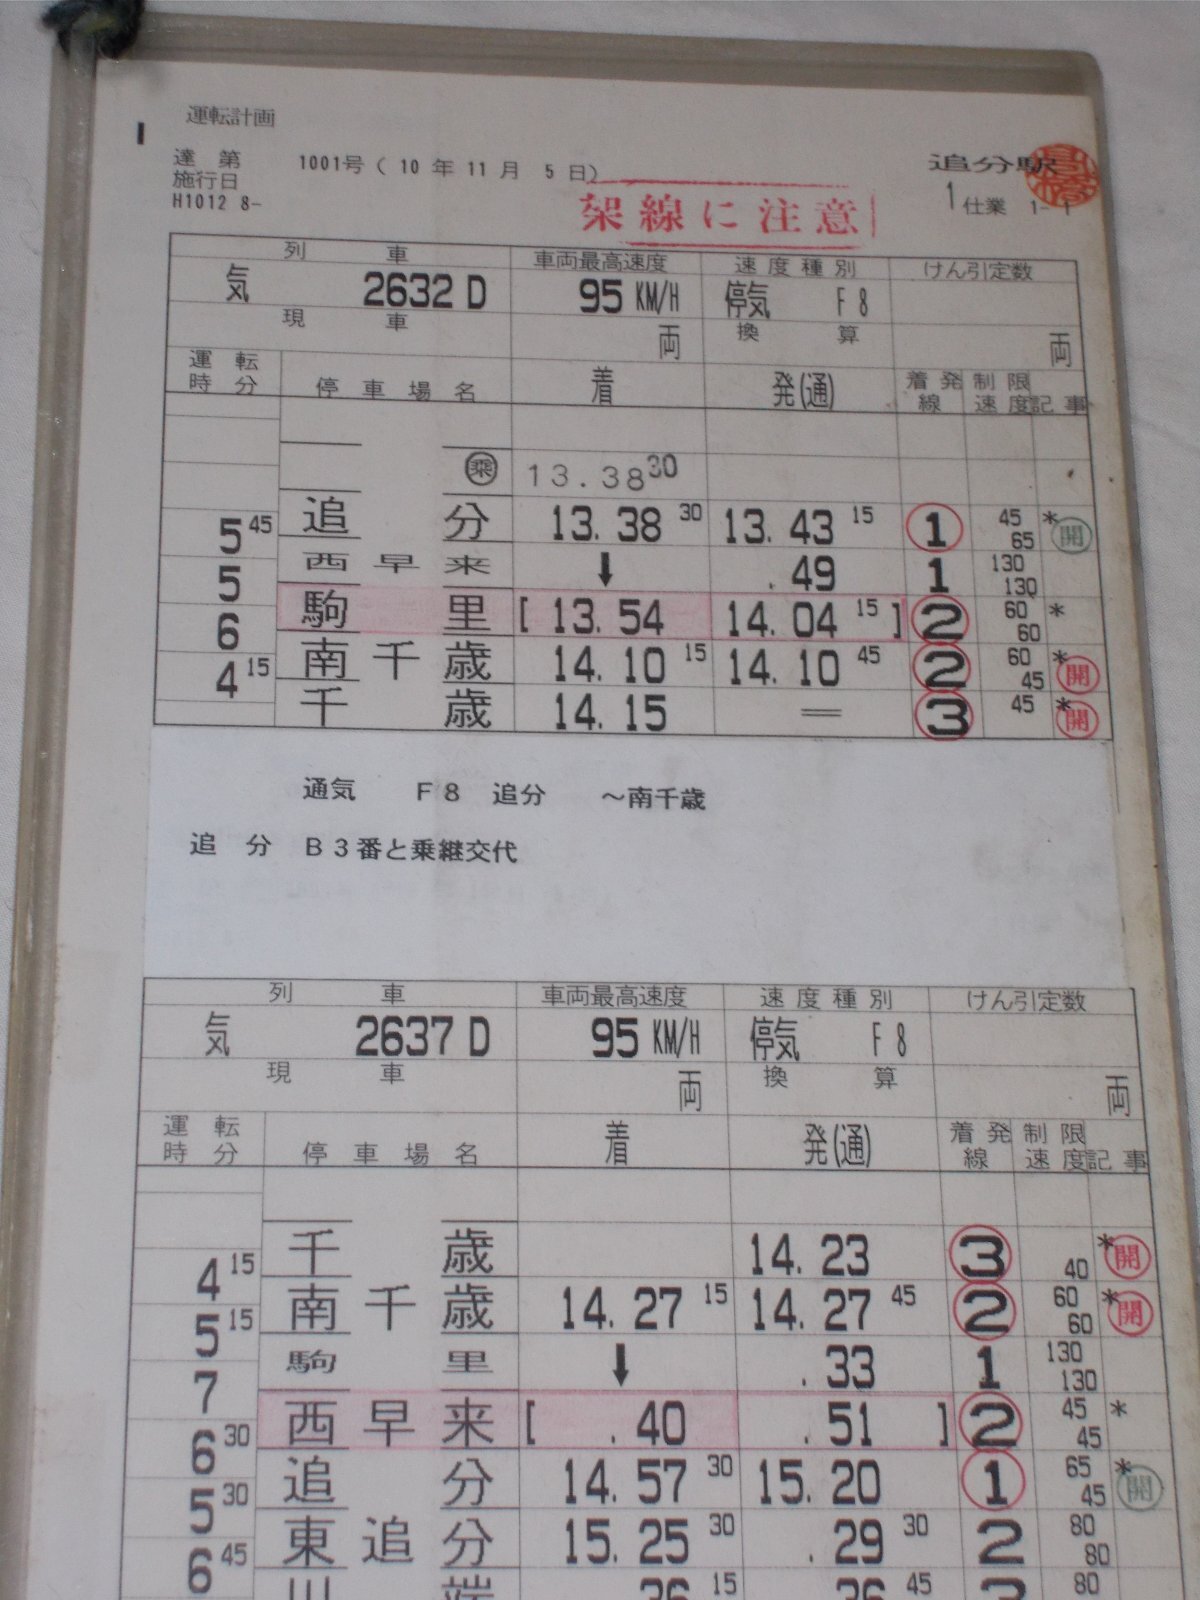 運転計画
達第 1001号( 10年11月 5日) 追分駅
施行日
H1012 8- 1仕業 1-1
架線に注意
列車 車両最高速度 速度種別 けん引定数
気 2632D 95KM/H 停気 F8
現車 両 換算 両
運転時分 停車場名 着 発(通) 着発線 制限速度 記事
乗 13.38 30
5 45 追分 13.38 30 13.43 15 1 45 65 * 開
5 西早来 ↓ .49 1 130 130
6 駒里 [ 13.54 14.04 15 ] 2 60 60 *
4 15 南千歳 14.10 15 14.10 45 2 60 45 * 開
千歳 14.15 = 3 45 * 開
通気 F8 追分 ～南千歳
追分 B3番と乗継交代
列車 車両最高速度 速度種別 けん引定数
気 2637D 95KM/H 停気 F8
現車 両 換算 両
運転時分 停車場名 着 発(通) 着発線 制限速度 記事
4 15 千歳 14.23 3 40 * 開
5 15 南千歳 14.27 15 14.27 45 2 60 60 * 開
7 駒里 ↓ .33 1 130 130
6 30 西早来 [ .40 .51 ] 2 45 45 *
5 30 追分 14.57 30 15.20 1 65 45 * 開
6 45 東追分 15.25 30 .29 30 2 80 80
川端 36 15 36 45 80